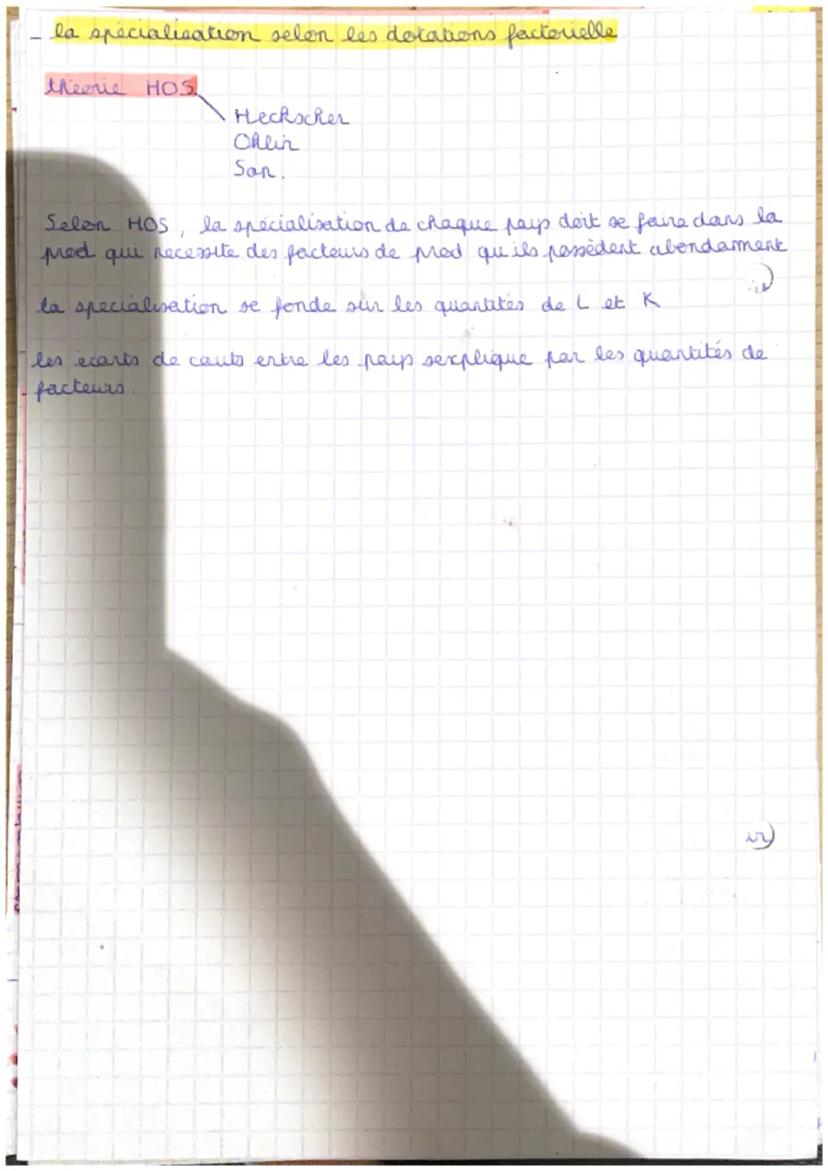 - la spécialisation selon les dotations factorielle
théorie HOS
Heckscher
Ohlin
Son.
Selon HOS, la spécialisation de chaque pays doit se faire dans la
prod qui necessite des facteurs de prod qu'ils possèdent abondamment
la specialisation se fonde sur les quantités de L et K
les écarts de couts entre les pays s'explique par les quantités de
facteurs.